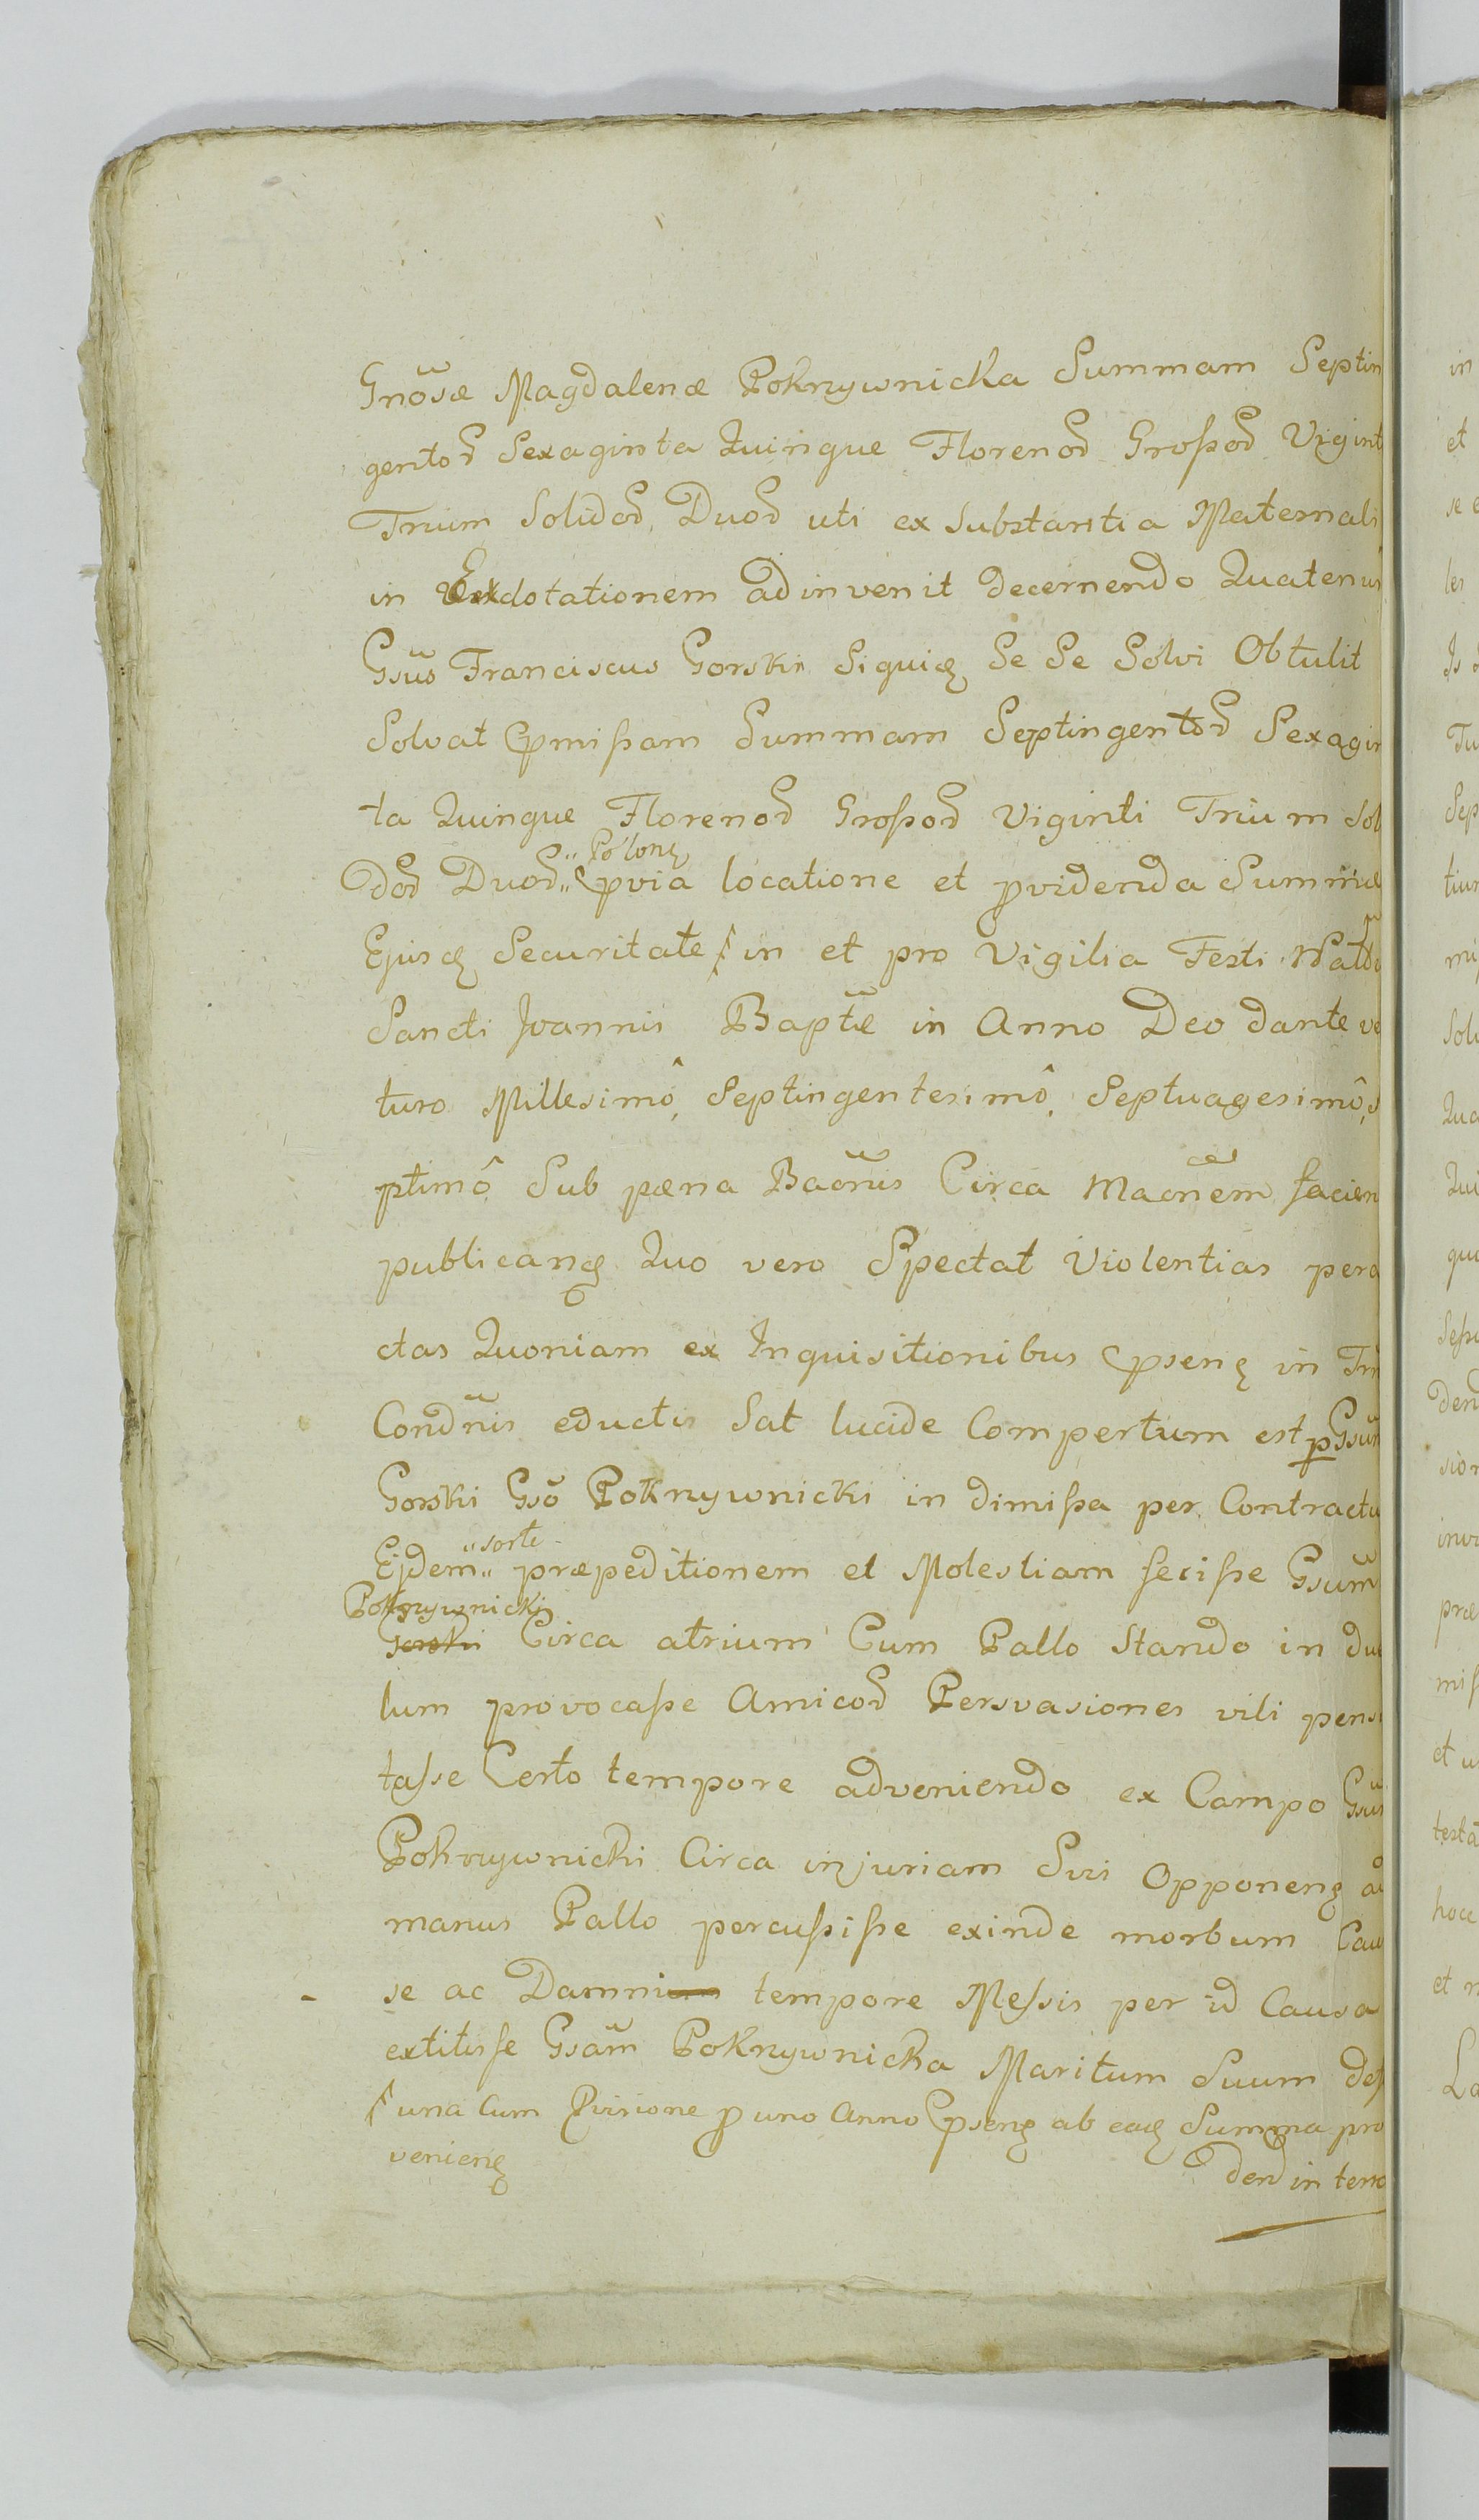 Gnosæ Magdalenæ Pokrzywnicka Summam Septin
gentod Sexaginta Quinque Florenod Groszod Vigint
Trium Solidod, Duod uti ex substantia Maternali
in Exdotationem adinvenit decernendo Quatenus
Gsus Franciscus Gorski Siquiq Se Se Solvi Obtulit
Solvat pmißam Summam Septingentod Sexagin
ta Quinque Florenod Großod Viginti Trium Sol
dod Duod „ Polonq
pvia locatione et pvidenda Summæ
Ejusq Securitate in et pro Vigilia Festi Nattis
Sancti Joannis Baptæ in Anno Deo dante ve
turo Millesimô, Septingentesimô, Septuagesimô, s
ptimô Sub pæna Bacnis Circa Macnem facien
publicanq Quo vero Spectat Violentias pera
ctas Quoniam ex Inquisitionibus psenq in Tri
Condnis eductis Sat lucide Compertum est p Gsum
Gorski Gso Pokrzywnicki in dimißa per Contractu
Ejdem „ sorte præpeditionem et Molestiam feciße Gsum
Pokrzywnicki
Gorski Circa atrium Cum Pallo Stando in due
lum provocaße Amicod Persvasiones vili pensi
tasse Certo tempore adveniendo ex Campo Gsus
Pokrzywnicki Circa injuriam Sui Opponenq ad
manus Pallo percußiße exinde morbum Cau
se ac Damni tempore Messis per id Causa
extitisse Gsam Pokrzywnicka Maritum Suum def
una Cum Pvisione p uno Anno psenq ab eadq Summa pro
venienq
dend in terro